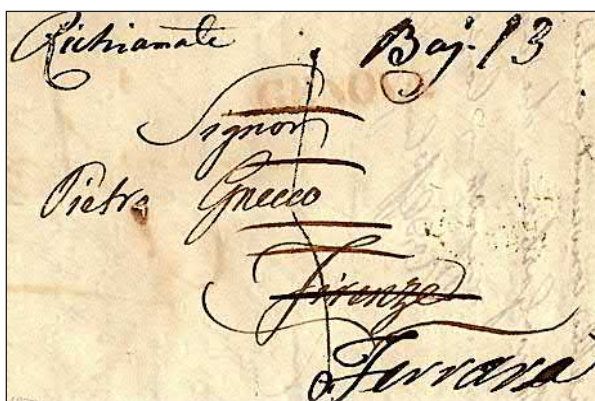 Richiamata Baj. 13
GENOVA
Signor
Pietro Gnecco
Firenze
Ferrara